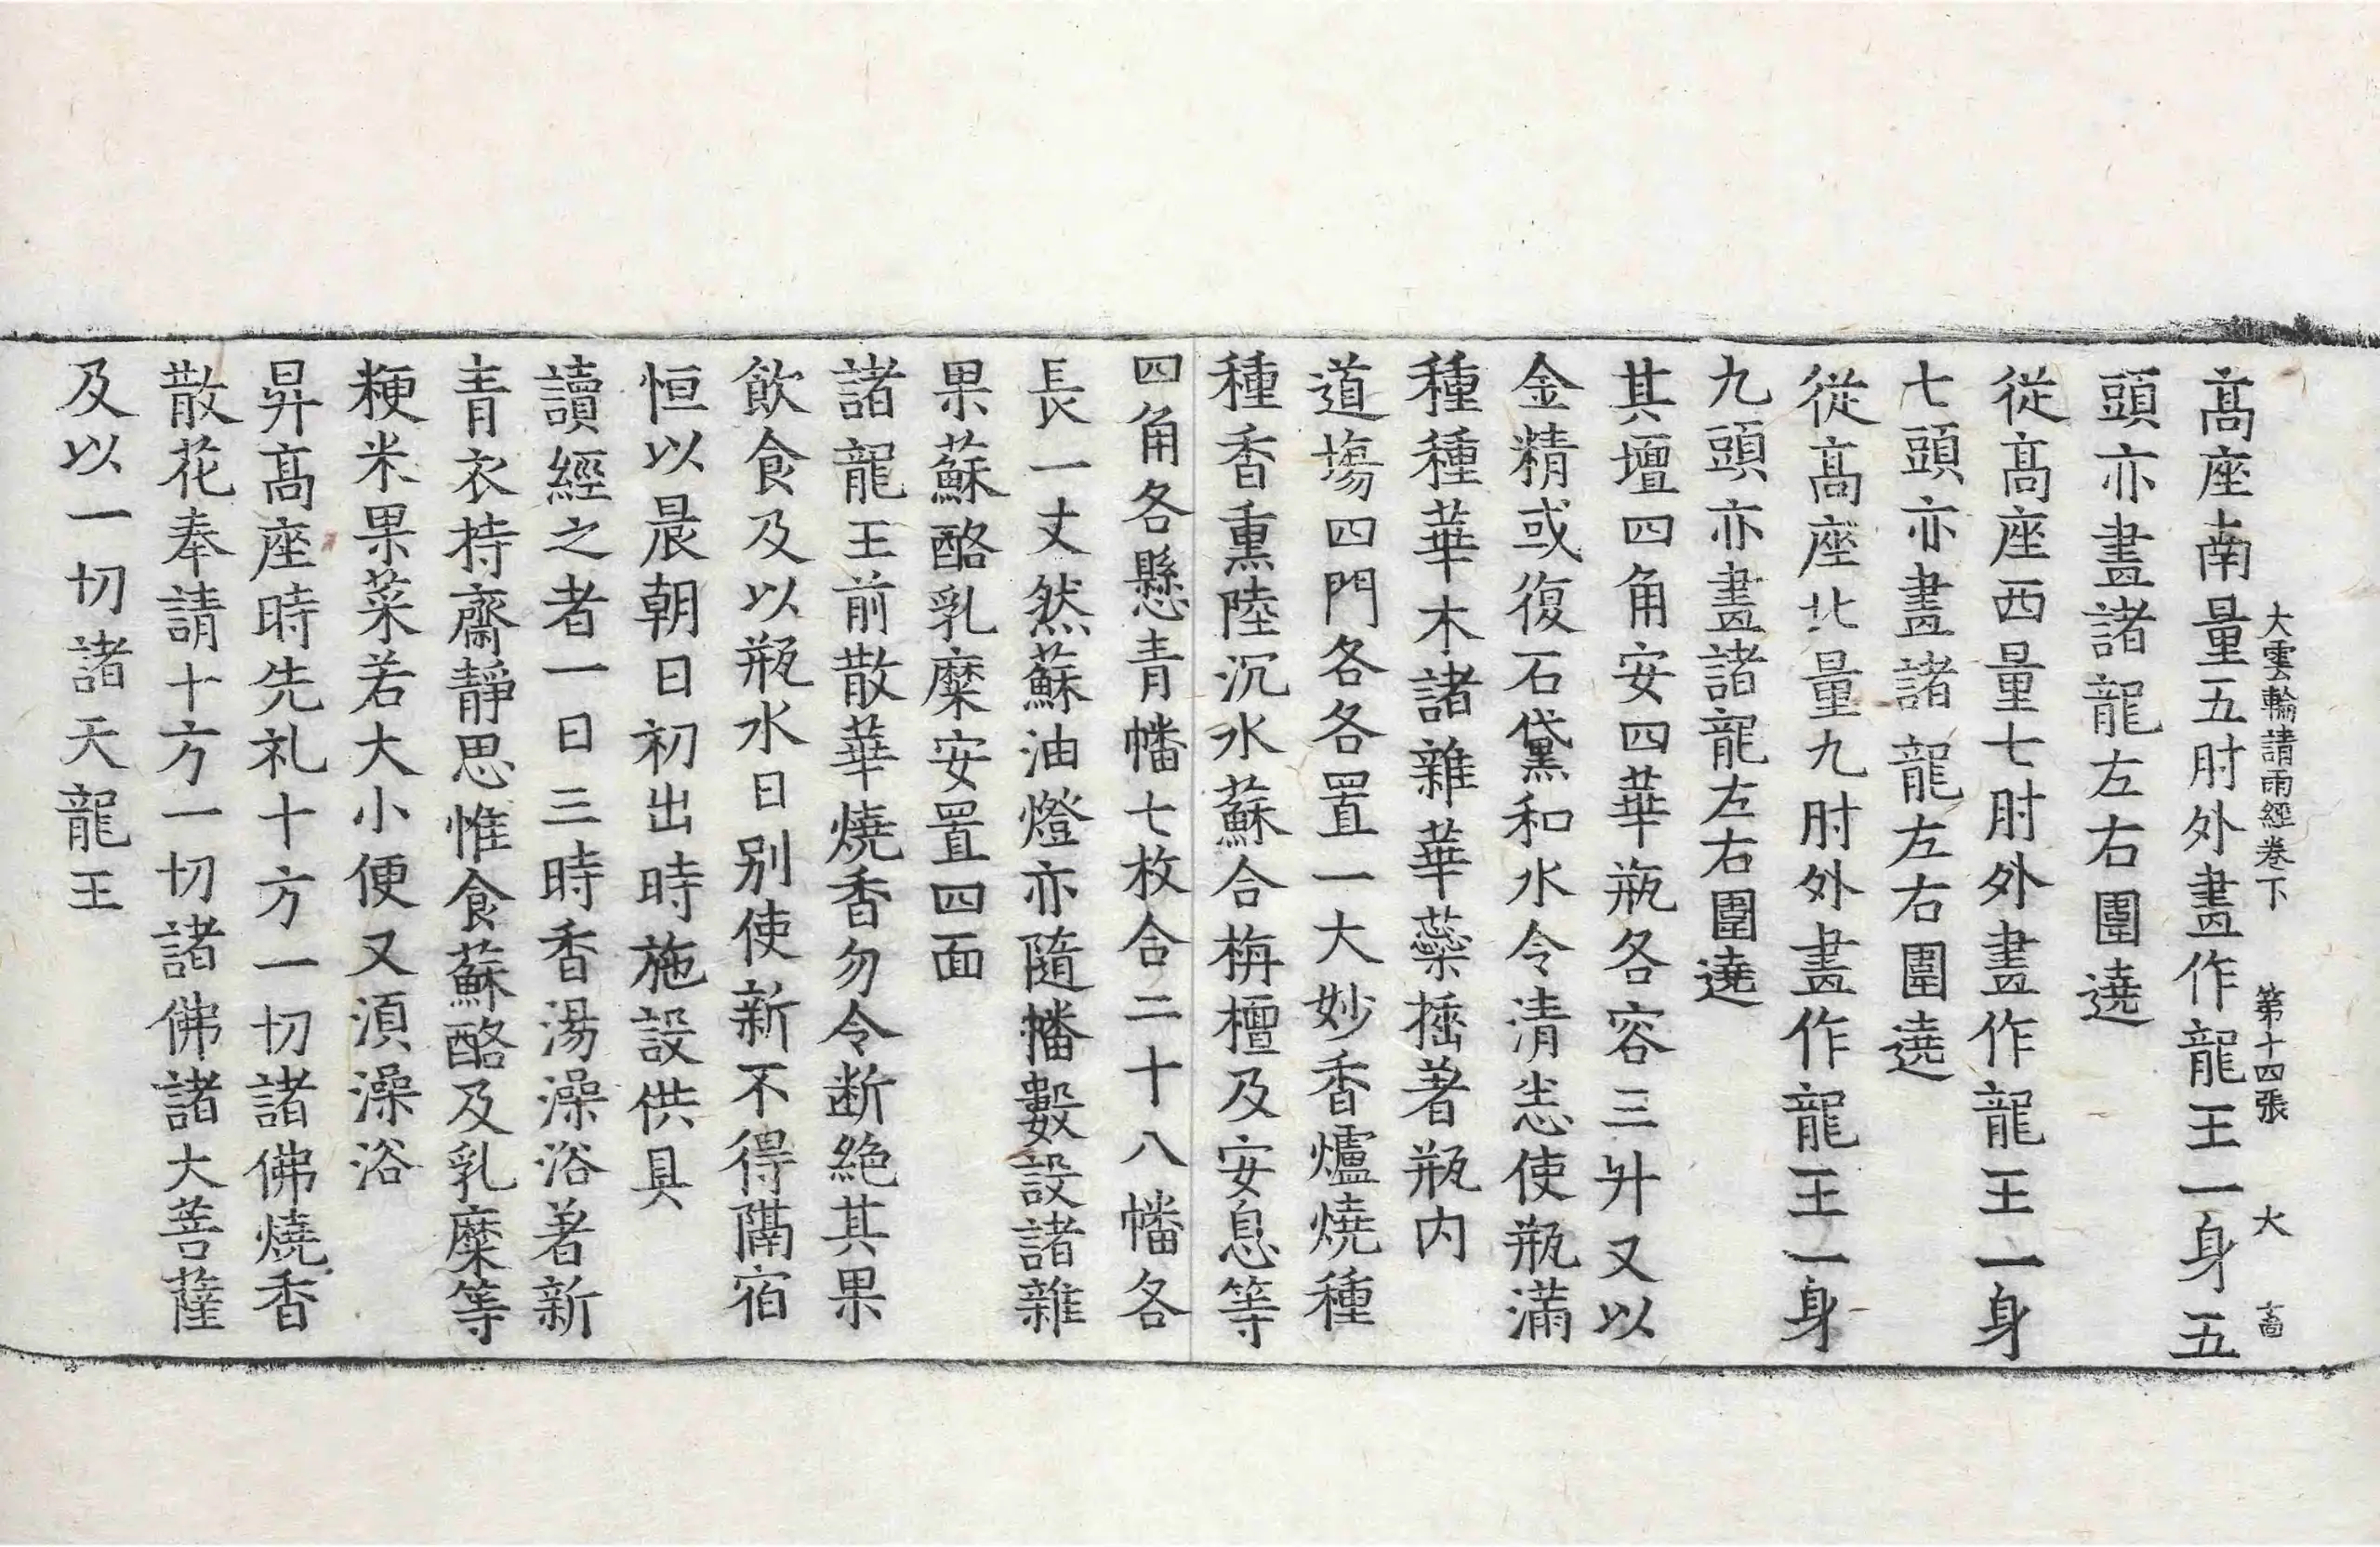 大雲輪請雨經卷下 第十四張 大
髙座南量五肘外畫作龍王一身五
頭亦畫諸龍左右圍遶
從髙座西量七肘外畫作龍王一身
七頭亦畫諸龍左右圍遶
從髙座北量九肘外畫作龍王一身
九頭亦畫諸龍左右圍遶
其壇四角安四華瓶各容三升又以
金精或復石黛和水令清恙使瓶滿
種種華木諸雜華蘂插著瓶内
道場四門各各置一大妙香爐燒種
種香熏陸沉水蘇合栴檀及安息等
四角各懸青幡七枚合二十八幡各
長一丈然蘇油燈亦隨幡數設諸雜
果蘇酪乳糜安置四面
諸龍王前散華燒香勿令断絶其果
飲食及以瓶水日別使新不得隔宿
恒以晨朝日初出時施設供具
讀經之者一日三時香湯澡浴著新
青衣持齋靜思惟食蘇酪及乳糜等
粳米果菜若大小便又湏澡浴
昇髙座時先礼十方一切諸佛燒香
散花奉請十方一切諸佛諸大菩薩
及以一切諸天龍王